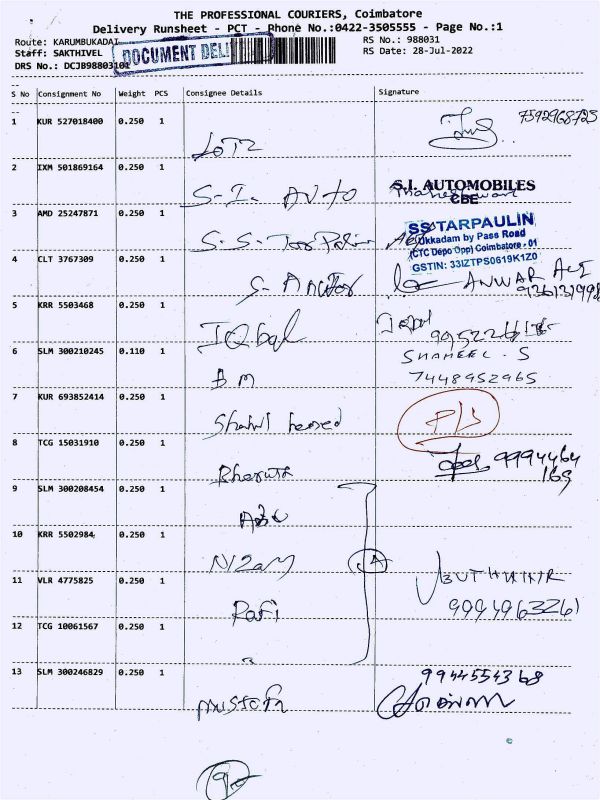 THE PROFESSIONAL COURIERS, Coimbatore
Delivery Runsheet - PCT - Phone No.:0422-3505555 - Page No.:1
Route: KARUMBUKADAI
RS No.: 988031
Staff: SAKTHIVEL
RS Date: 28-Jul-2022
DRS No.: DCJB98803101
DOCUMENT DELI
S No Consignment No Weight PCS Consignee Details Signature
1 KUR 527018400 0.250 1
7592968723
2 IXM 501869164 0.250 1
S-I- AUTO
S.I. AUTOMOBILES
CBE
3 AMD 25247871 0.250 1
S-S-
SS TARPAULIN
Ukkadam by Pass Road
(CTC Depo Opp) Coimbatore - 01
GSTIN: 33IZTPS0619K1Z0
4 CLT 3767309 0.250 1
ANWAR
5 KRR 5503468 0.250 1
IQbal
6 SLM 300210245 0.110 1
B M
SHAHEEL . S
7448952965
7 KUR 693852414 0.250 1
8 TCG 15031910 0.250 1
9994464
169
9 SLM 300208454 0.250 1
10 KRR 5502984 0.250 1
NIZAM
A
11 VLR 4775825 0.250 1
Rafi
9994963261
12 TCG 10061567 0.250 1
13 SLM 300246829 0.250 1
9944554368